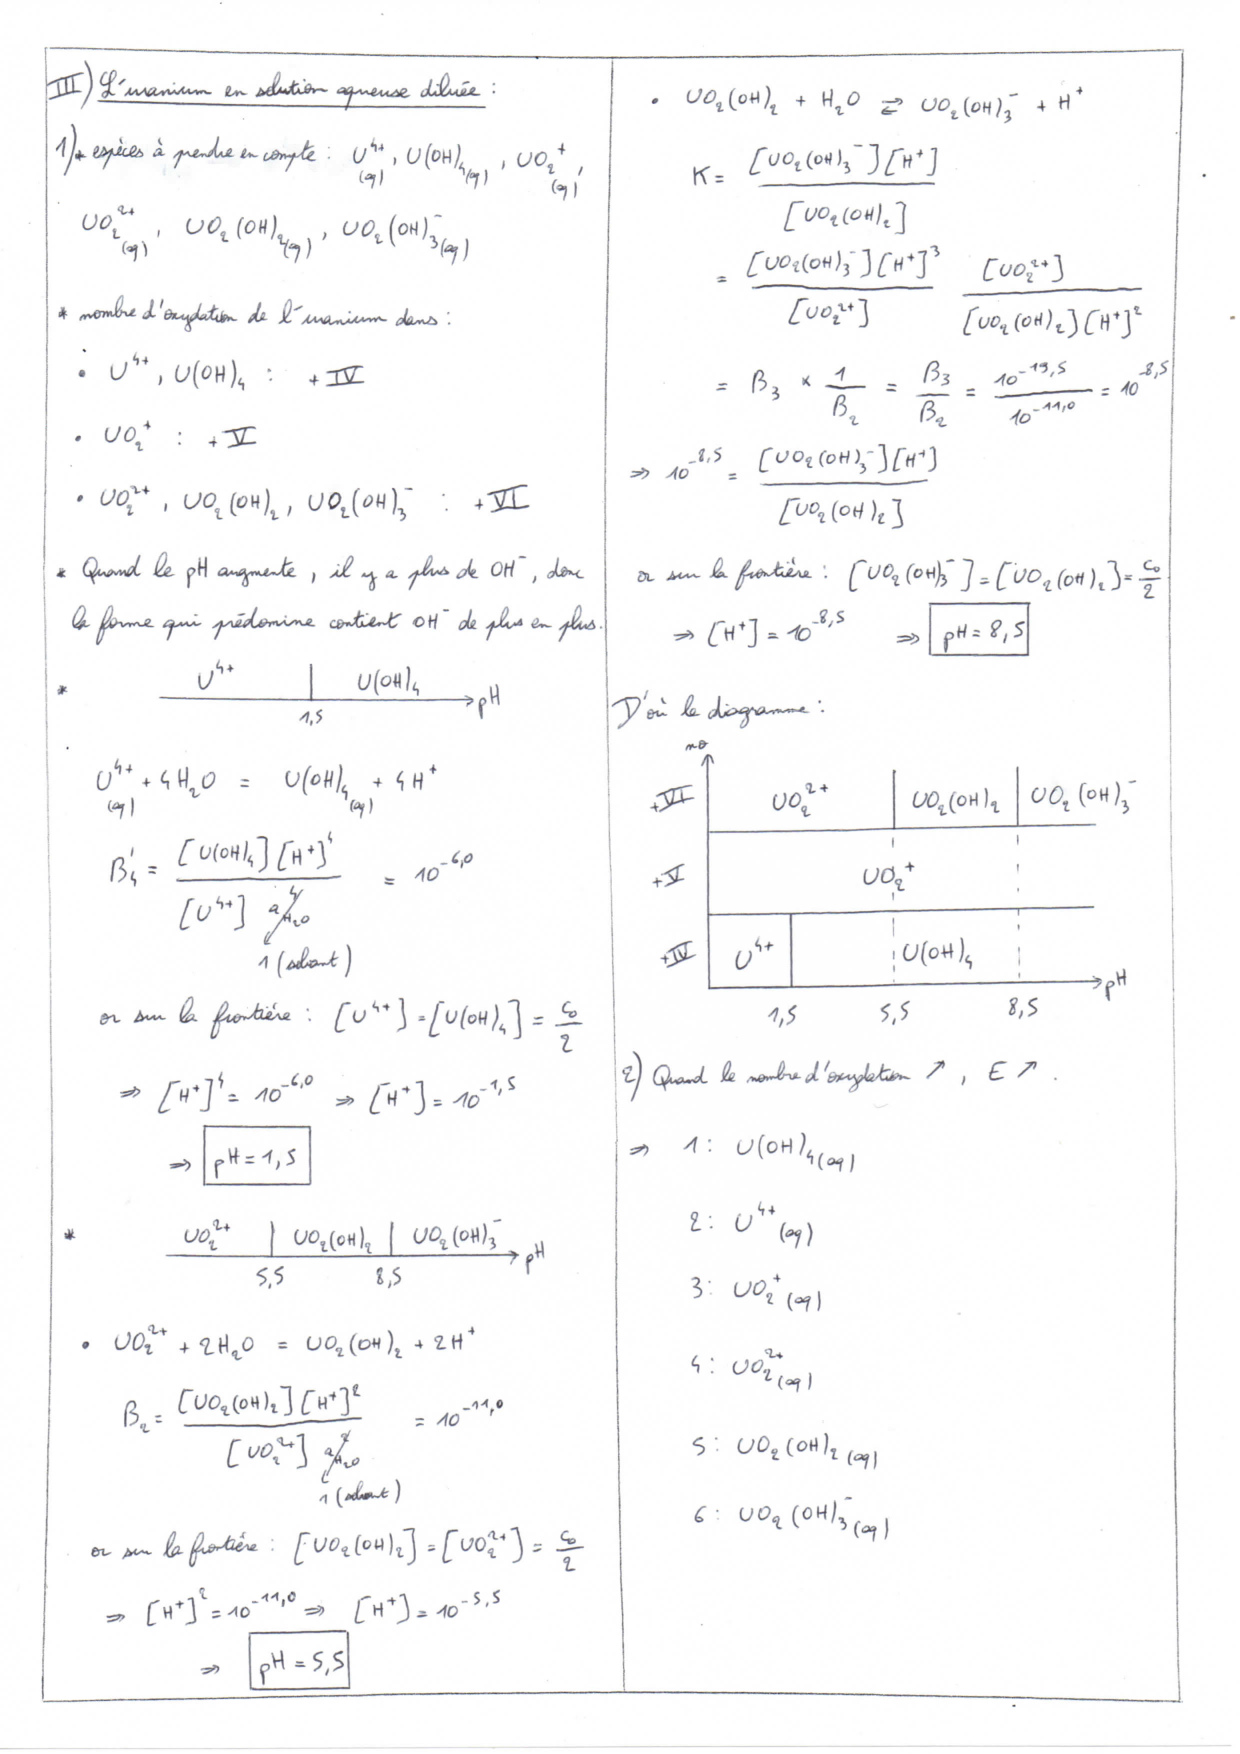 III) L'uranium en solution aqueuse diluée :
1) * espèces à prendre en compte : U⁴⁺(aq), U(OH)₄(aq), UO₂⁺(aq),
UO₂²⁺(aq), UO₂(OH)₂(aq), UO₂(OH)₃⁻(aq)
* nombre d'oxydation de l'uranium dans :
• U⁴⁺, U(OH)₄ : +IV
• UO₂⁺ : +V
• UO₂²⁺, UO₂(OH)₂, UO₂(OH)₃⁻ : +VI
* Quand le pH augmente, il y a plus de OH⁻, donc
la forme qui prédomine contient OH⁻ de plus en plus.
* U⁴⁺ | U(OH)₄ → pH
1,5
U⁴⁺(aq) + 4H₂O = U(OH)₄(aq) + 4H⁺
β₄' = [U(OH)₄][H⁺]⁴ / [U⁴⁺] a⁴H₂O = 10^-6,0
1 (solvant)
or sur la frontière : [U⁴⁺] = [U(OH)₄] = C₀/2
⇒ [H⁺]⁴ = 10^-6,0 ⇒ [H⁺] = 10^-1,5
⇒ pH = 1,5
* UO₂²⁺ | UO₂(OH)₂ | UO₂(OH)₃⁻ → pH
5,5 8,5
• UO₂²⁺ + 2H₂O = UO₂(OH)₂ + 2H⁺
β₂ = [UO₂(OH)₂][H⁺]² / [UO₂²⁺] a²H₂O = 10^-11,0
1 (solvant)
or sur la frontière : [UO₂(OH)₂] = [UO₂²⁺] = C₀/2
⇒ [H⁺]² = 10^-11,0 ⇒ [H⁺] = 10^-5,5
⇒ pH = 5,5
• UO₂(OH)₂ + H₂O ⇄ UO₂(OH)₃⁻ + H⁺
K = [UO₂(OH)₃⁻][H⁺] / [UO₂(OH)₂]
= [UO₂(OH)₃⁻][H⁺]³ / [UO₂²⁺] [UO₂²⁺] / [UO₂(OH)₂][H⁺]²
= β₃ × 1/β₂ = β₃/β₂ = 10^-19,5 / 10^-11,0 = 10^-8,5
⇒ 10^-8,5 = [UO₂(OH)₃⁻][H⁺] / [UO₂(OH)₂]
or sur la frontière : [UO₂(OH)₃⁻] = [UO₂(OH)₂] = C₀/2
⇒ [H⁺] = 10^-8,5 ⇒ pH = 8,5
D'où le diagramme :
no
+VI UO₂²⁺ UO₂(OH)₂ UO₂(OH)₃⁻
+V UO₂⁺
+IV U⁴⁺ U(OH)₄
pH
1,5 5,5 8,5
2) Quand le nombre d'oxydation ↗, E ↗.
⇒ 1 : U(OH)₄(aq)
2 : U⁴⁺(aq)
3 : UO₂⁺(aq)
4 : UO₂²⁺(aq)
5 : UO₂(OH)₂(aq)
6 : UO₂(OH)₃⁻(aq)